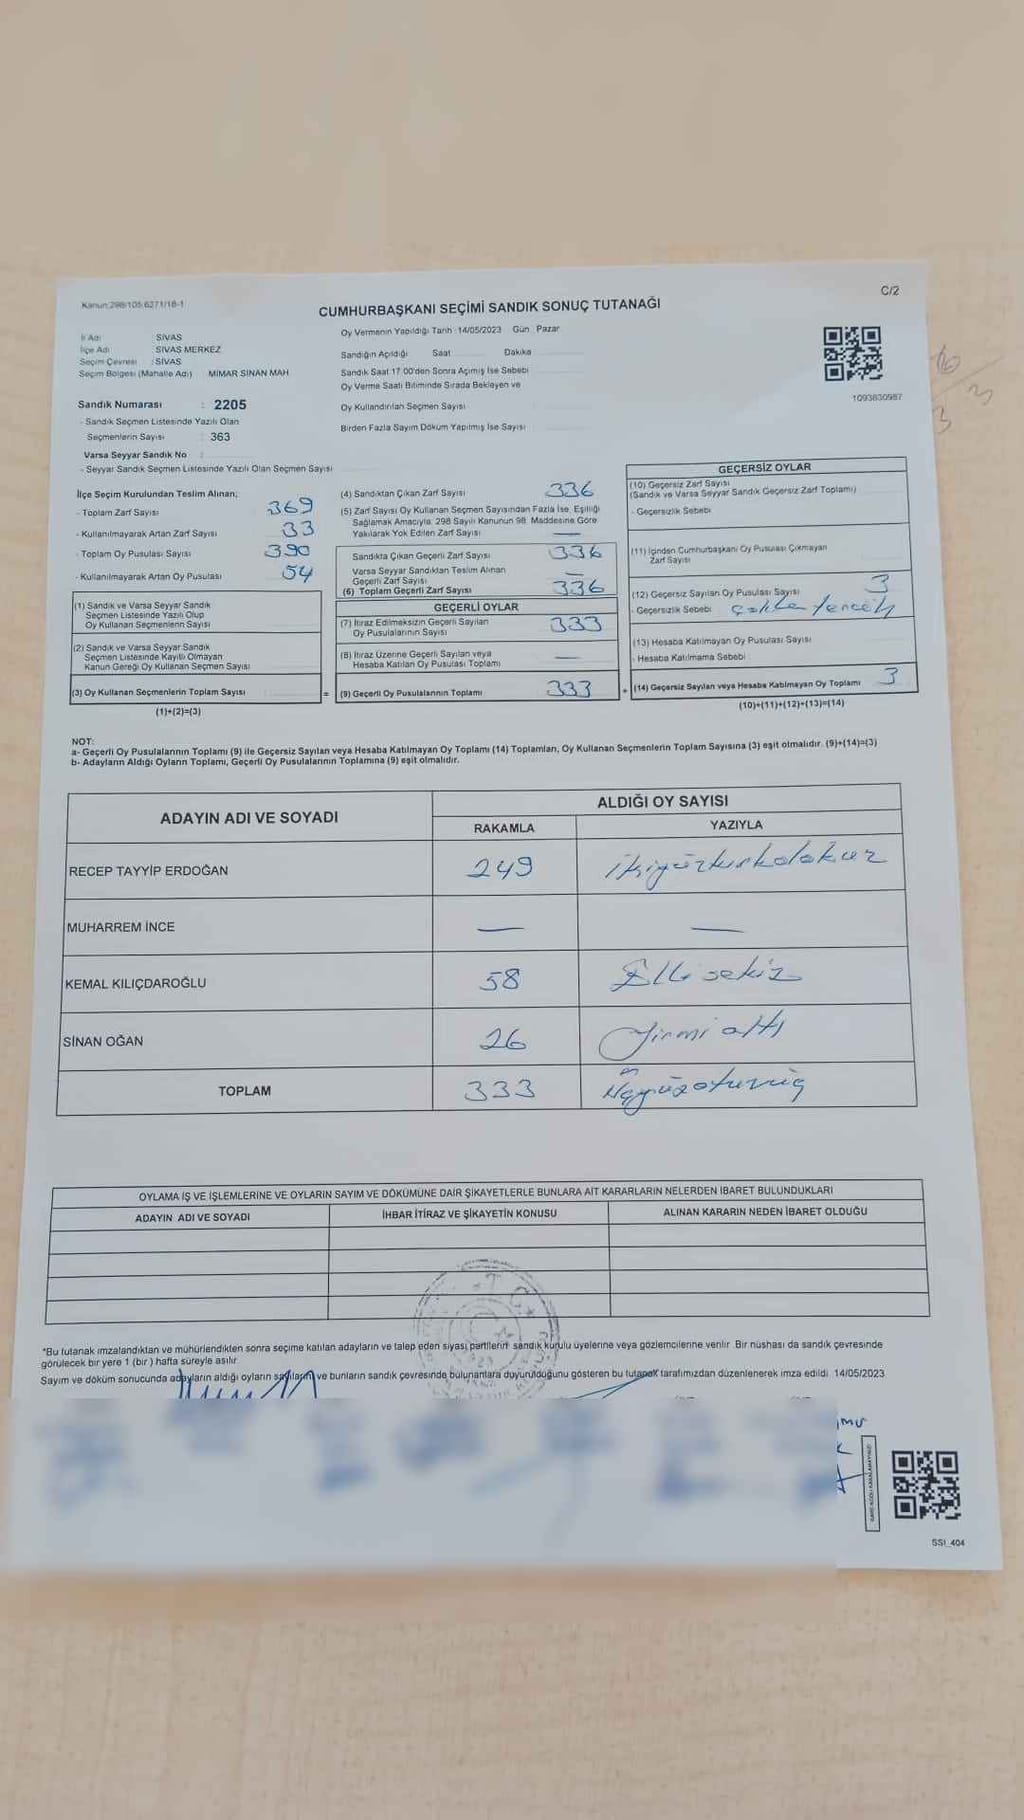 C/2
Kanun:298/105;6271/18-1
CUMHURBAŞKANI SEÇİMİ SANDIK SONUÇ TUTANAĞI
İl Adı : SİVAS
İlçe Adı : SİVAS MERKEZ
Seçim Çevresi : SİVAS
Seçim Bölgesi (Mahalle Adı) MİMAR SİNAN MAH
Sandık Numarası : 2205
- Sandık Seçmen Listesinde Yazılı Olan
Seçmenlerin Sayısı : 363
Varsa Seyyar Sandık No :
- Seyyar Sandık Seçmen Listesinde Yazılı Olan Seçmen Sayısı
Oy Vermenin Yapıldığı Tarih :14/05/2023 Gün : Pazar
Sandığın Açıldığı Saat Dakika
Sandık Saat 17.00'den Sonra Açımış İse Sebebi
Oy Verme Saati Bitiminde Sırada Bekleyen ve
Oy Kullandırılan Seçmen Sayısı
Birden Fazla Sayım Döküm Yapılmış İse Sayısı
1093630987
İlçe Seçim Kurulundan Teslim Alınan;
- Toplam Zarf Sayısı 369
- Kullanılmayarak Artan Zarf Sayısı 33
- Toplam Oy Pusulası Sayısı 390
- Kullanılmayarak Artan Oy Pusulası 54
(1) Sandık ve Varsa Seyyar Sandık
Seçmen Listesinde Yazılı Olup
Oy Kullanan Seçmenlerin Sayısı
(2) Sandık ve Varsa Seyyar Sandık
Seçmen Listesinde Kayıtlı Olmayan
Kanun Gereği Oy Kullanan Seçmen Sayısı
(3) Oy Kullanan Seçmenlerin Toplam Sayısı =
(1)+(2)=(3)
(4) Sandıktan Çıkan Zarf Sayısı 336
(5) Zarf Sayısı Oy Kullanan Seçmen Sayısından Fazla İse, Eşitliği
Sağlamak Amacıyla, 298 Sayılı Kanunun 98. Maddesine Göre
Yakılarak Yok Edilen Zarf Sayısı —
Sandıkta Çıkan Geçerli Zarf Sayısı 336
Varsa Seyyar Sandıktan Teslim Alınan
Geçerli Zarf Sayısı —
(6) Toplam Geçerli Zarf Sayısı 336
GEÇERLİ OYLAR
(7) İtiraz Edilmeksizin Geçerli Sayılan
Oy Pusulalarının Sayısı 333
(8) İtiraz Üzerine Geçerli Sayılan veya
Hesaba Katılan Oy Pusulası Toplamı —
(9) Geçerli Oy Pusulalarının Toplamı 333 +
GEÇERSİZ OYLAR
(10) Geçersiz Zarf Sayısı
(Sandık ve Varsa Seyyar Sandık Geçersiz Zarf Toplamı)
- Geçersizlik Sebebi
(11) İçinden Cumhurbaşkanı Oy Pusulası Çıkmayan
Zarf Sayısı
(12) Geçersiz Sayılan Oy Pusulası Sayısı 3
- Geçersizlik Sebebi
(13) Hesaba Katılmayan Oy Pusulası Sayısı
- Hesaba Katılmama Sebebi
(14) Geçersiz Sayılan veya Hesaba Katılmayan Oy Toplamı 3
(10)+(11)+(12)+(13)=(14)
NOT:
a- Geçerli Oy Pusulalarının Toplamı (9) ile Geçersiz Sayılan veya Hesaba Katılmayan Oy Toplamı (14) Toplamları, Oy Kullanan Seçmenlerin Toplam Sayısına (3) eşit olmalıdır. (9)+(14)=(3)
b- Adayların Aldığı Oyların Toplamı, Geçerli Oy Pusulalarının Toplamına (9) eşit olmalıdır.
ADAYIN ADI VE SOYADI ALDIĞI OY SAYISI
RAKAMLA YAZIYLA
RECEP TAYYİP ERDOĞAN 249 ikiyüzkırkdokuz
MUHARREM İNCE — —
KEMAL KILIÇDAROĞLU 58 Elli sekiz
SİNAN OĞAN 26 Yirmi altı
TOPLAM 333 üçyüzotuzüç
OYLAMA İŞ VE İŞLEMLERİNE VE OYLARIN SAYIM VE DÖKÜMÜNE DAİR ŞİKAYETLERLE BUNLARA AİT KARARLARIN NELERDEN İBARET BULUNDUKLARI
ADAYIN ADI VE SOYADI İHBAR İTİRAZ VE ŞİKAYETİN KONUSU ALINAN KARARIN NEDEN İBARET OLDUĞU
T.C.
*Bu tutanak imzalandıktan ve mühürlendikten sonra seçime katılan adayların ve talep eden siyasi partilerin sandık kurulu üyelerine veya gözlemcilerine verilir. Bir nüshası da sandık çevresinde
görülecek bir yere 1 (bir ) hafta süreyle asılır.
Sayım ve döküm sonucunda adayların aldığı oyların sayılarını ve bunların sandık çevresinde bulunanlara duyurulduğunu gösteren bu tutanak tarafımızdan düzenlenerek imza edildi. 14/05/2023
SSI_404